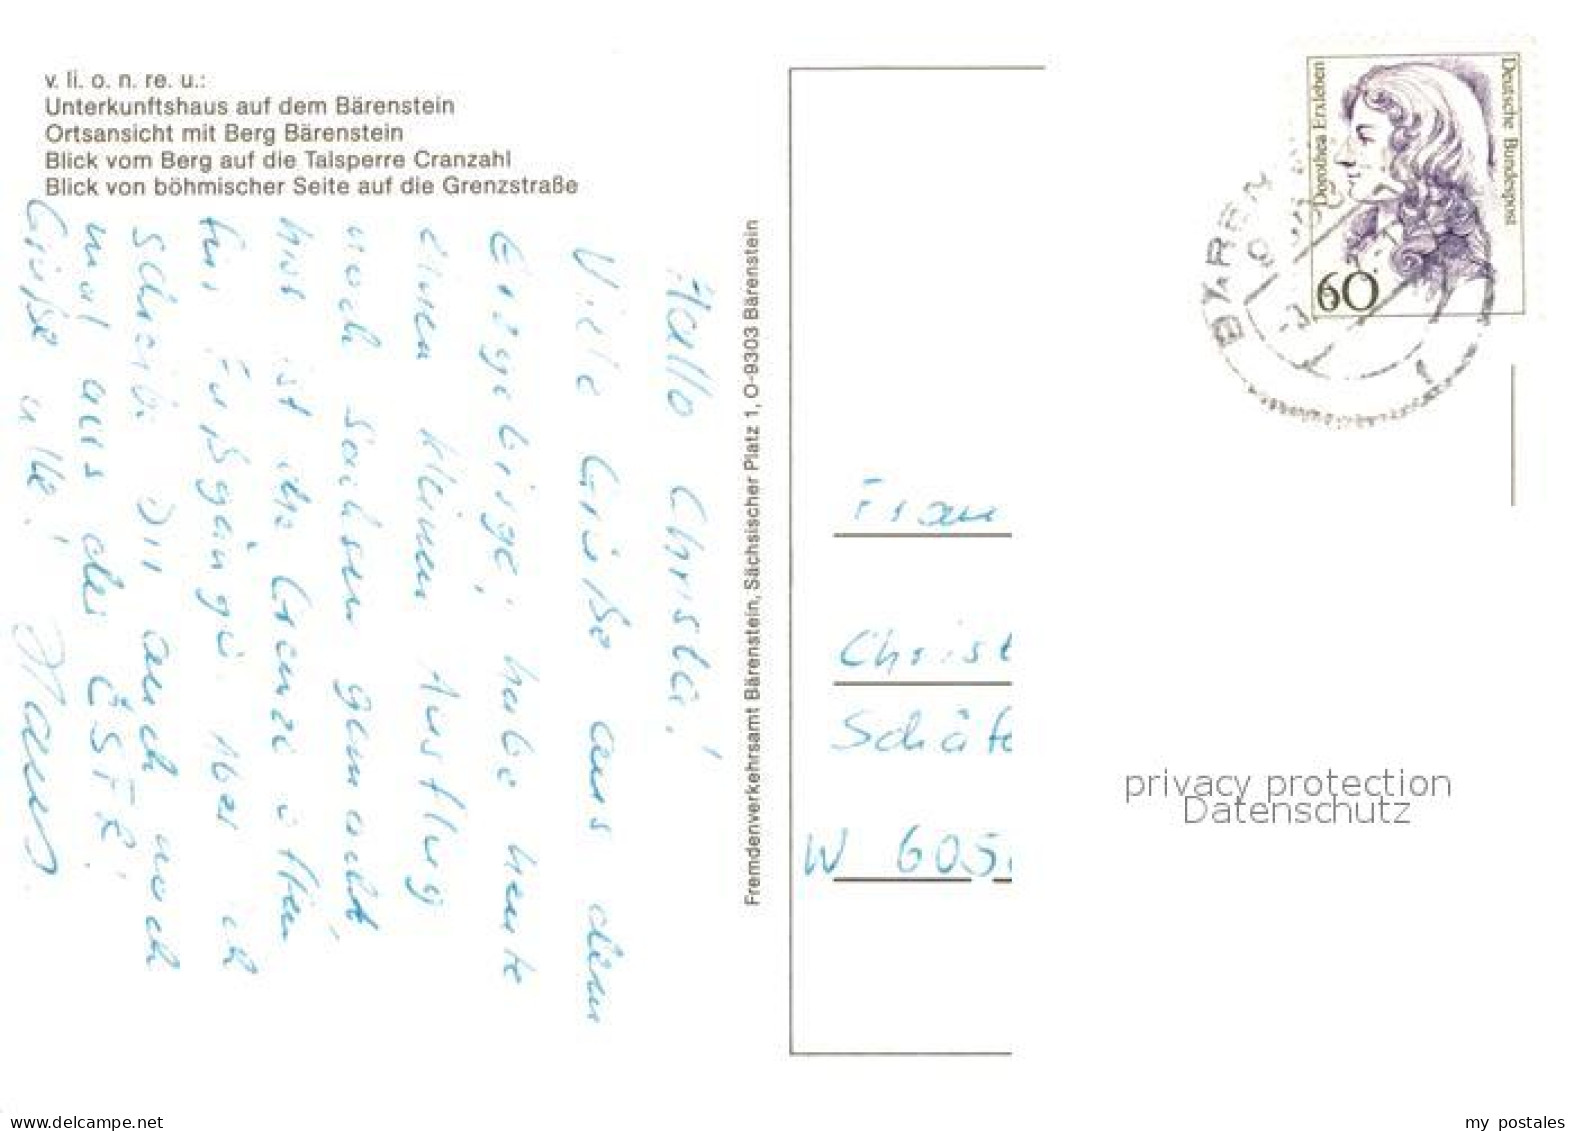 v. li. o. n. re. u.:
Unterkunftshaus auf dem Bärenstein
Ortsansicht mit Berg Bärenstein
Blick vom Berg auf die Talsperre Cranzahl
Blick von böhmischer Seite auf die Grenzstraße
Hallo Christa!
Viele Grüße aus dem
Erzgebirge; habe heute
einen kleinen Ausflug
nach Sachsen gemacht,
hier ist die Grenze offen
für Fußgänger. Aber ich
schreib Dir auch noch
mal aus der ČSFR!
Grüße alle!
Fremdenverkehrsamt Bärenstein, Sächsischer Platz 1, O-9303 Bärenstein
Deutsche Bundespost
Dorothea Erxleben
60
Frau
Christ
Schäfe
W 605
privacy protection
Datenschutz
www.delcampe.net
my postales